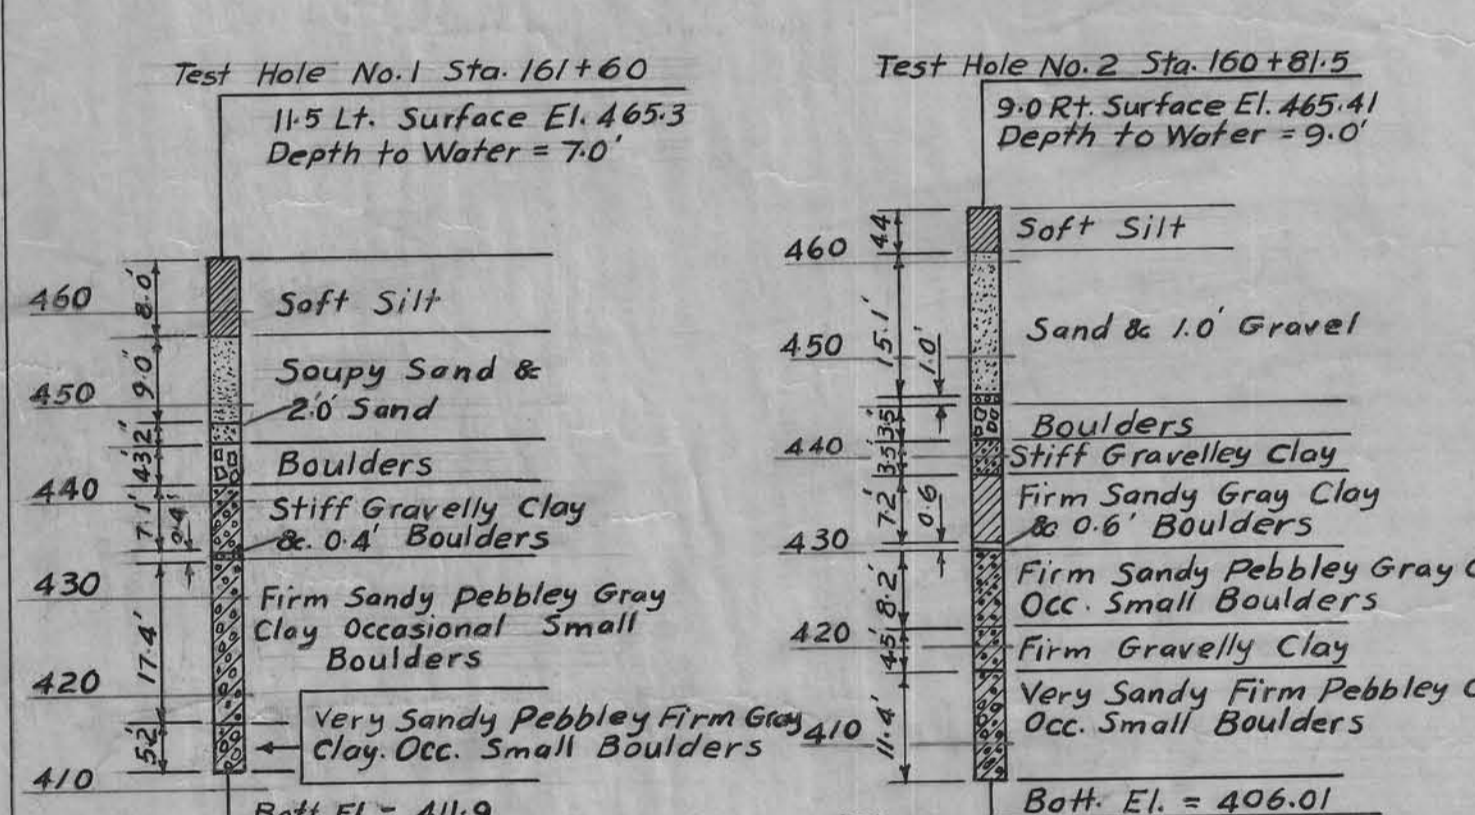 Test Hole No. 1 Sta. 161+60
11.5 Lt. Surface El. 465.3
Depth to Water = 7.0'
460
450
440
430
420
410
8.0'
9.0'
2'
4.3'
7.1'
0.4'
17.4'
5.2'
Soft Silt
Soupy Sand &
2.0' Sand
Boulders
Stiff Gravelly Clay
&. 0.4' Boulders
Firm Sandy Pebbley Gray
Clay Occasional Small
Boulders
Very Sandy Pebbley Firm Gray
Clay. Occ. Small Boulders
Bott El = 411.9
Test Hole No. 2 Sta. 160+81.5
9.0 Rt. Surface El. 465.41
Depth to Water = 9.0'
460
450
440
430
420
410
4.4
15.1'
1.0'
3.5'
3.5'
7.2'
0.6
8.2'
4.5'
11.4'
Soft Silt
Sand & 1.0' Gravel
Boulders
Stiff Gravelley Clay
Firm Sandy Gray Clay
& 0.6' Boulders
Firm Sandy Pebbley Gray C
Occ. Small Boulders
Firm Gravelly Clay
Very Sandy Firm Pebbley C
Occ. Small Boulders
Bott. El. = 406.01